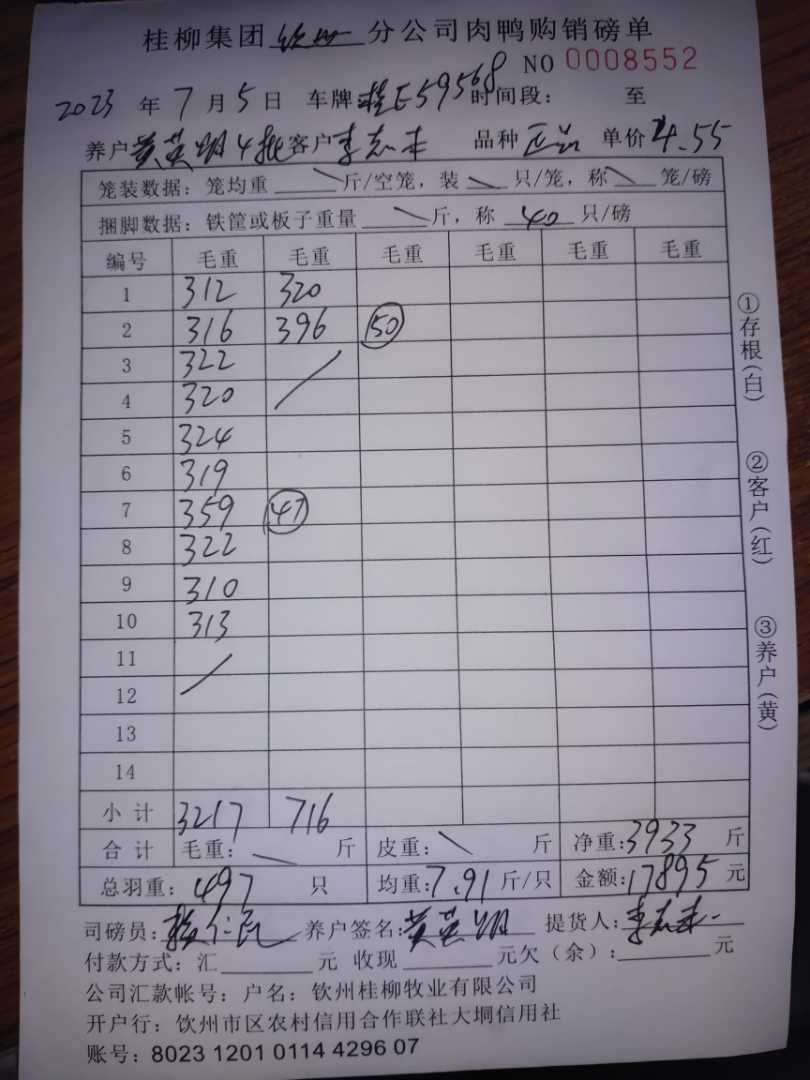 桂柳集团钦州分公司肉鸭购销磅单
NO 0008552
2023年7月5日 车牌桂E59568时间段: 至
养户黄英明4批客户李志丰 品种正品 单价4.55
笼装数据:笼均重 \ 斤/空笼,装 \ 只/笼,称 \ 笼/磅
捆脚数据:铁筐或板子重量 \ 斤,称 40 只/磅
编号 毛重 毛重 毛重 毛重 毛重 毛重
1 312 320
2 316 396 50
3 322
4 320
5 324
6 319
7 359 47
8 322
9 310
10 313
11
12
13
14
小计 3217 716
合计 毛重: 斤 皮重: \ 斤 净重:3933 斤
总羽重:497 只 均重:7.91斤/只 金额:17895元
司磅员: 养户签名:黄英明 提货人:李志丰
付款方式:汇 元 收现 元欠(余): 元
公司汇款帐号:户名:钦州桂柳牧业有限公司
开户行:钦州市区农村信用合作联社大垌信用社
账号:8023 1201 0114 4296 07
①存根(白)
②客户(红)
③养户(黄)